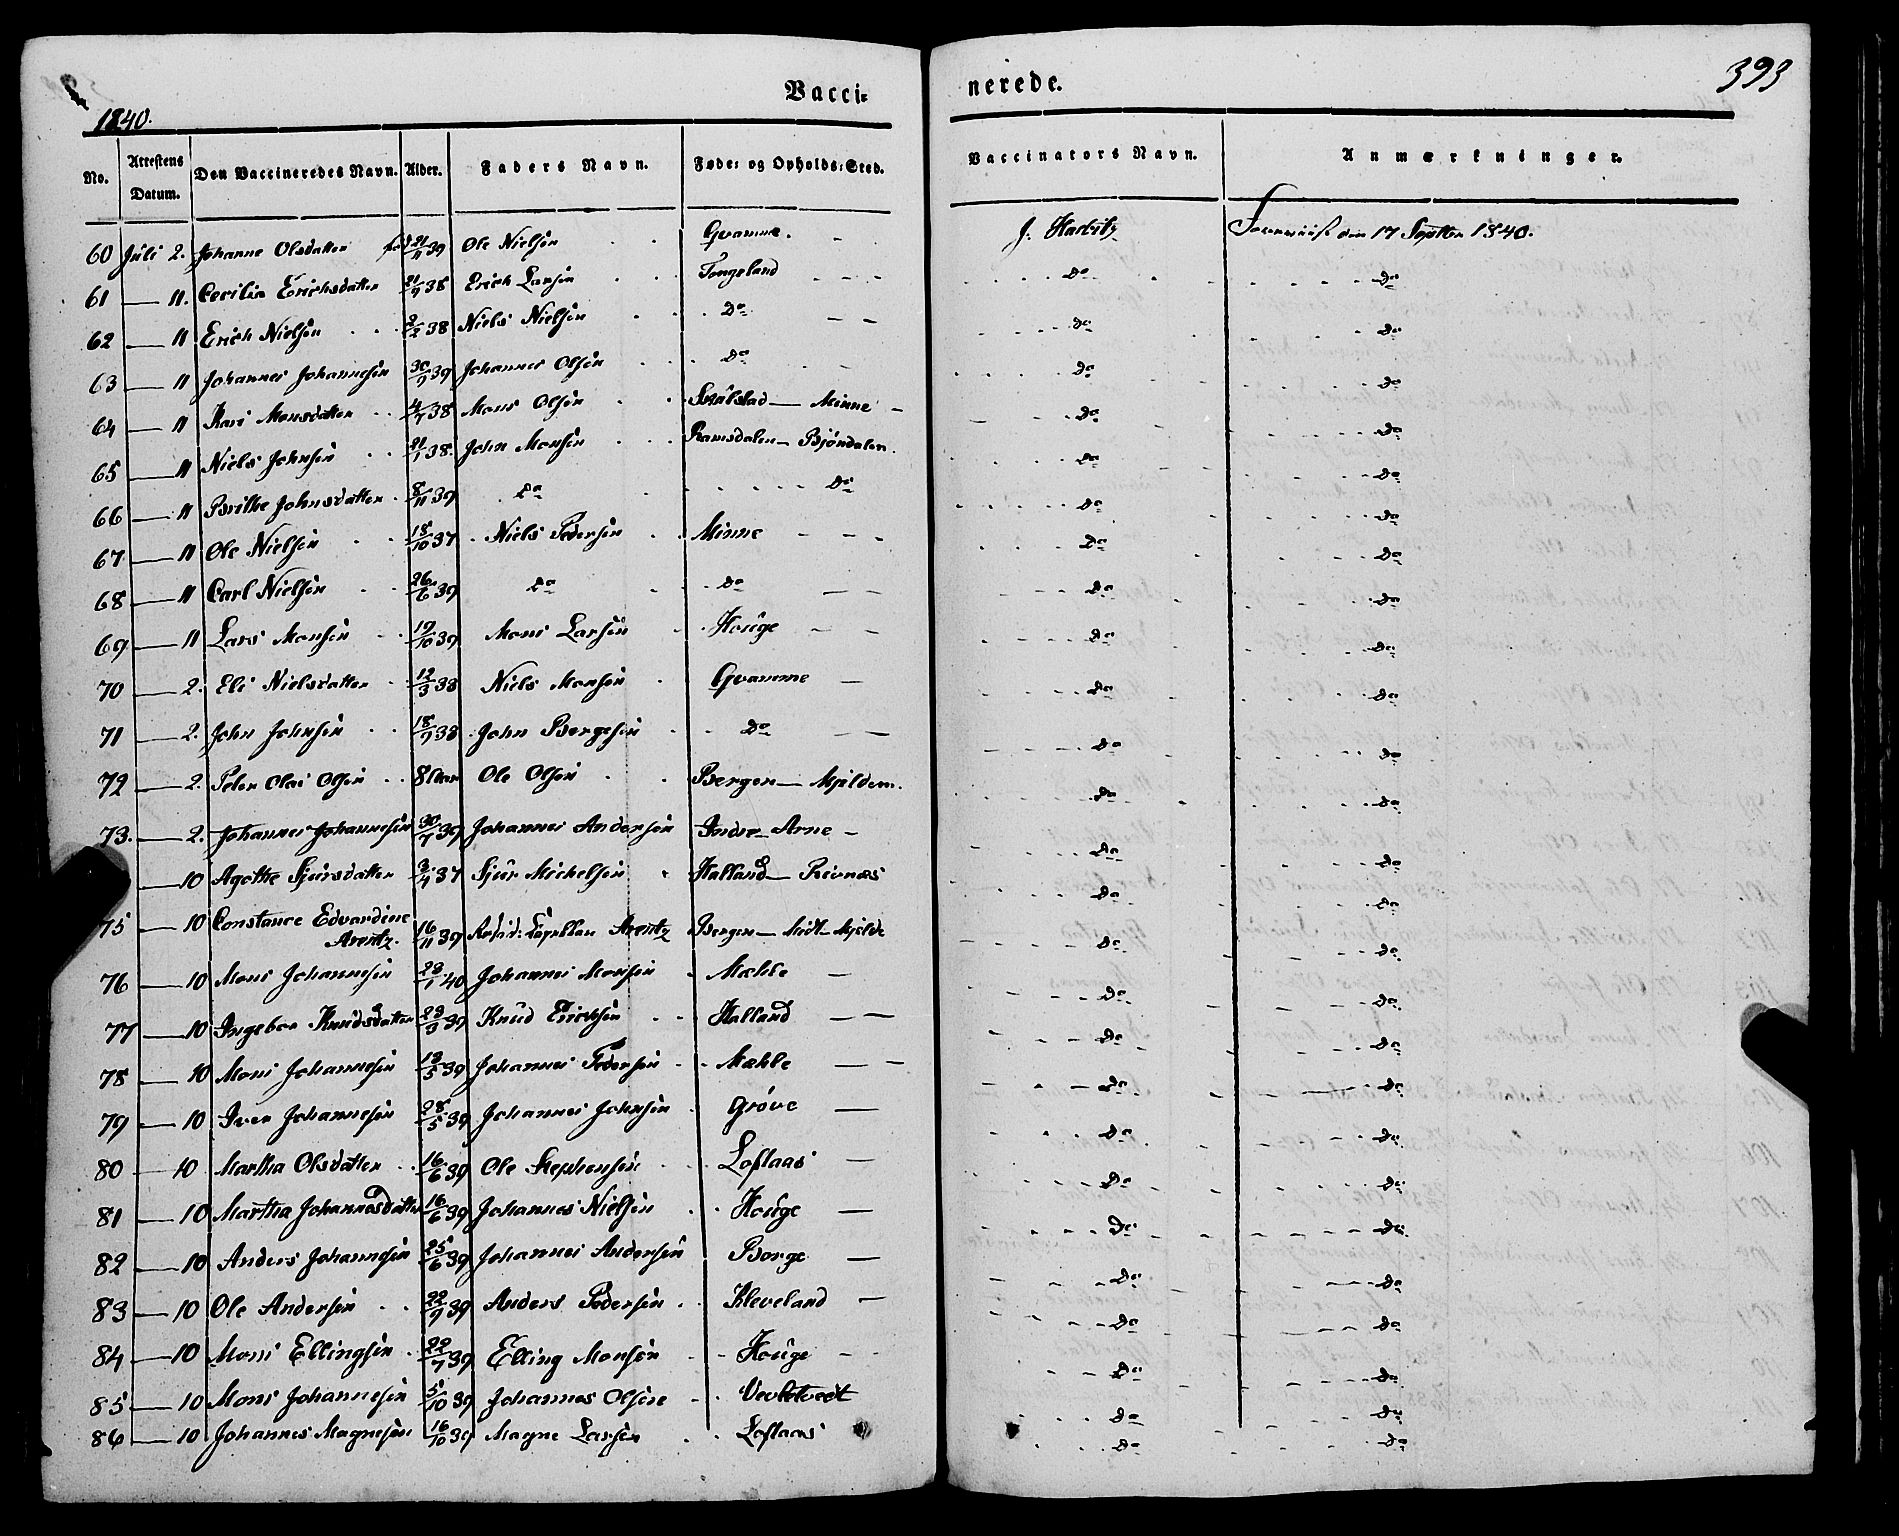 Vacci- nerede. 393
1840.
No. Attestens Datum. Den Vaccineredes Navn. Alder. Faders Navn. Føde- og Opholds-Sted. Vaccinators Navn. Anmærkninger.
60 Juli 2. Johanne Olsdatter fød 21/11 39 Ole Nielsen Gvamme. J. Harbitz den 17 Septbr 1840.
61 — 11. Cecilia Erichsdatter 21/9 38 Erich Larsen Tengeland — Do Do
62 — 11 Erich Nielsen 2/2 38 Niels Nielsen Do — Do Do
63 — 11 Johannes Johannesen 30/9 39 Johannes Olsen Do Do Do
64 — 11 Kari Monsdatter 4/7 38 Mons Olsen — Minne — Do Do
65 — 11 Niels Johnsen 21/1 38. John Monsen Ramsdalen — Bjöndalen. Do Do
66 — 11 Brithe Johnsdatter 8/11 39 Do Do Do Do
67 — 11 Ole Nielsen 18/10 37 Niels Pedersen Minne Do Do
68 — 11 Carl Nielsen 26/6 39 Do Do — Do Do
69 — 11 Lars Monsen 19/10 39 Mons Larsen Houge — Do Do
70 — 2. Eli Nielsdatter 12/3 38 Niels Monsen Gvamme — Do Do
71 — 2. John Johnsen 18/9 38 John Borgesen Do — Do Do
72 — 2. Peder Olai Olsen 8 Aar Ole Olsen Bergen — Mjelden. Do Do
73. — 2. Johannes Johannesen 30/7 39 Johannes Andersen Indre Arne — Do Do
— 10 Agothe Sjursdatter 3/4 37 Sjur Michelsen Halland — Revnæs Do Do
75 — 10 Constance Edvardine
Arentz. 16/11 39 Resid: Capellan Arentz Bergen — Midt-Mjelde Do Do
76 — 10 Mons Johannesen 23/1 40 Johannes Monsen Mæhle — Do Do
77 — 10 Ingebor Knudsdatter 23/9 39 Knud Erichsen Halland — Do Do
78 — 10 Mons Johannesen 13/5 39 Johannes Pedersen Mæhle — Do Do
79 — 10 Iver Johannesen 28/5 39 Johannes Johnsen Gröve — Do Do
80 — 10 Martha Olsdatter 16/6 39 Ole Stephensen Loftaas — Do Do
81 — 10 Martha Johannesdatter 16/6 39 Johannes Nielsen Houge — Do Do
82 — 10 Anders Johannesen 25/6 39 Johannes Andersen Borge — Do Do
83 — 10 Ole Andersen 22/9 39 Anders Pedersen Kleveland — Do Do
84 — 10 Mons Ellingsen 22/7 39 Elling Monsen Houge Do Do
85 — 10 Mons Johannesen 5/10 39 Johannes Olsen Do Do
86 — 10 Johannes Magnesen 16/10 39 Magne Larsen Loftaas Do Do